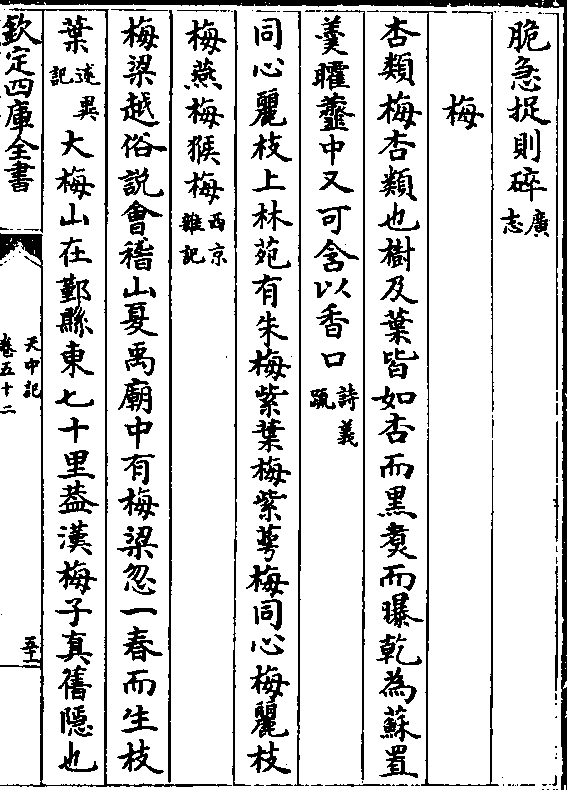 脆急捉則碎廣志
梅
杏類梅杏類也樹及葉皆如杏而黒煑而曝乾為蘇置
羮臛虀中又可含以香口詩義疏
同心麗枝上林苑有朱梅紫葉梅紫萼梅同心梅麗枝
梅燕梅猴梅西京雜記
梅梁越俗說會稽山夏禹廟中有梅梁忽一春而生枝
葉述異記大梅山在鄞縣東七十里葢漢梅子真舊隠也
欽定四庫全書
天中記
卷五十二
五十二